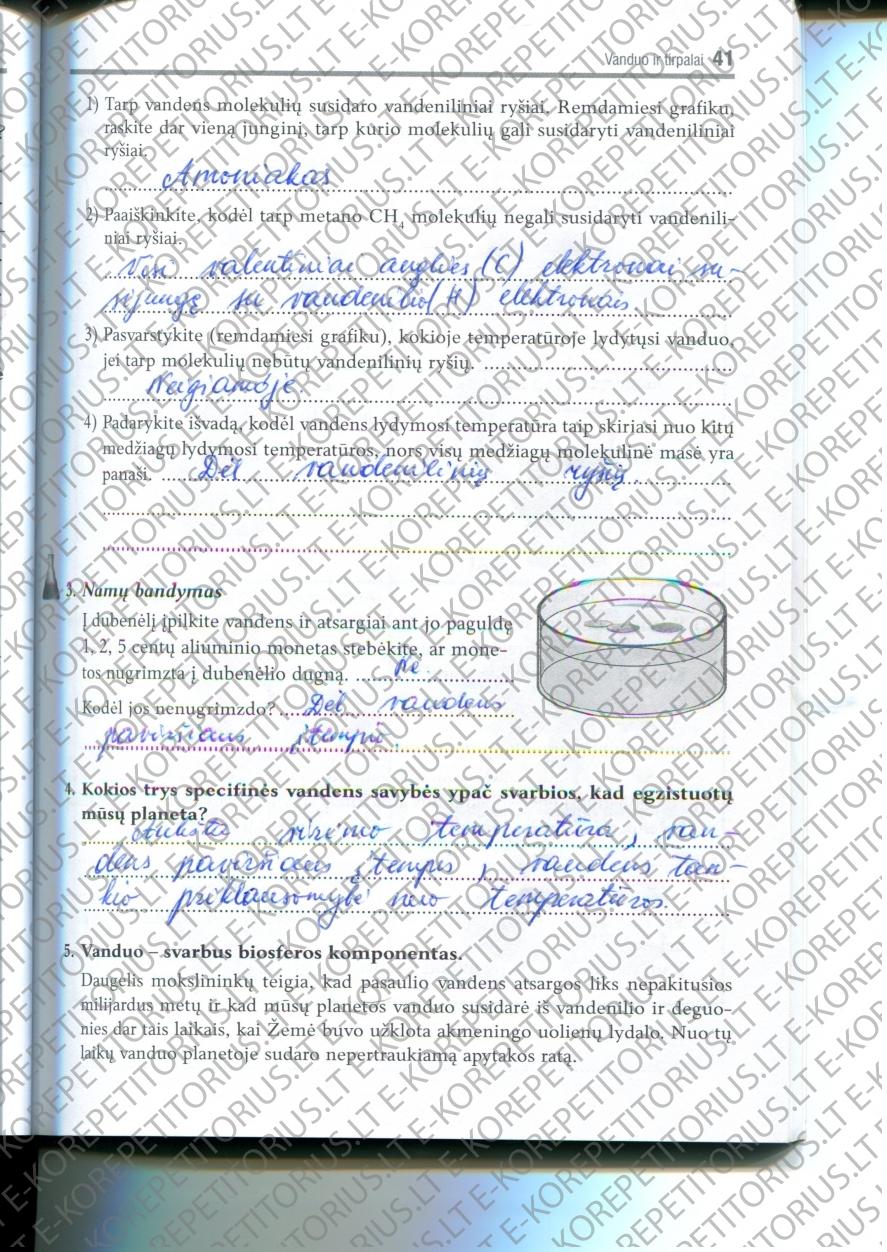 Vanduo ir tirpalai 41
1) Tarp vandens molekulių susidaro vandeniliniai ryšiai. Remdamiesi grafiku,
raskite dar vieną junginį, tarp kurio molekulių gali susidaryti vandeniliniai
ryšiai.
Amoniakas
2) Paaiškinkite, kodėl tarp metano CH₄ molekulių negali susidaryti vandenili-
niai ryšiai.
Visi valentiniai anglies (C) elektronai su-
sijungę su vandenilio (H) elektronais.
3) Pasvarstykite (remdamiesi grafiku), kokioje temperatūroje lydytųsi vanduo,
jei tarp molekulių nebūtų vandenilinių ryšių.
Neigiamoje
4) Padarykite išvadą, kodėl vandens lydymosi temperatūra taip skiriasi nuo kitų
medžiagų lydymosi temperatūros, nors visų medžiagų molekulinė masė yra
panaši. Dėl vandenilinių ryšių.
3. Namų bandymas
Į dubenėlį įpilkite vandens ir atsargiai ant jo paguldę
1, 2, 5 centų aliuminio monetas stebėkite, ar mone-
tos nugrimzta į dubenėlio dugną. Ne
Kodėl jos nenugrimzdo? Dėl vandens
paviršiaus įtempio.
4. Kokios trys specifinės vandens savybės ypač svarbios, kad egzistuotų
mūsų planeta?
Aukšta virimo temperatūra, van-
dens paviršiaus įtempis, vandens tan-
kio priklausomybė nuo temperatūros.
5. Vanduo – svarbus biosferos komponentas.
Daugelis mokslininkų teigia, kad pasaulio vandens atsargos liks nepakitusios
milijardus metų ir kad mūsų planetos vanduo susidarė iš vandenilio ir deguo-
nies dar tais laikais, kai Žemė buvo užklota akmeningo uolienų lydalo. Nuo tų
laikų vanduo planetoje sudaro nepertraukiamą apytakos ratą.
E-KOREPETITORIUS.LT